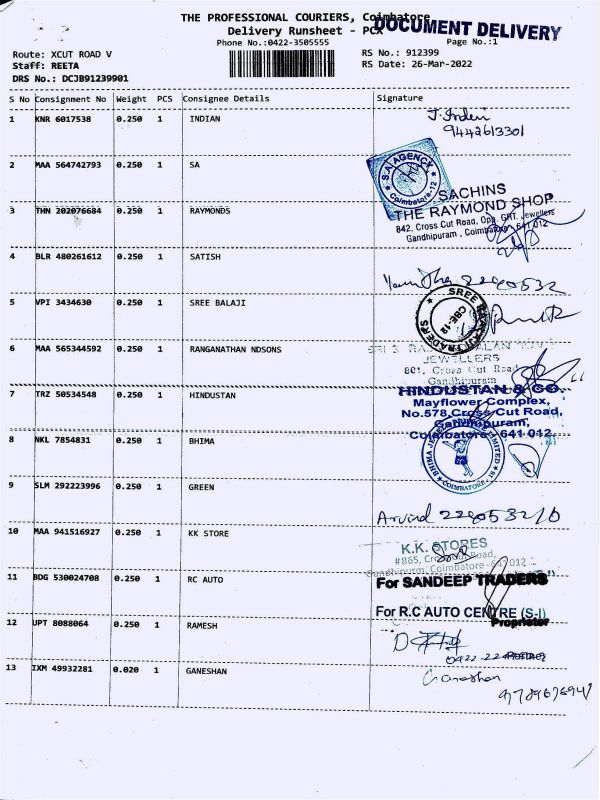 THE PROFESSIONAL COURIERS, Coimbatore
DOCUMENT DELIVERY
Delivery Runsheet - PCX
Phone No.:0422-3505555
Page No.:1
Route: XCUT ROAD V
RS No.: 912399
Staff: REETA
RS Date: 26-Mar-2022
DRS No.: DCJB91239901
S No Consignment No Weight PCS Consignee Details Signature
1 KNR 6017538 0.250 1 INDIAN
9442613301
2 MAA 564742793 0.250 1 SA
S.A AGENCY
Coimbatore-12
SACHINS
THE RAYMOND SHOP
3 THN 202076684 0.250 1 RAYMONDS
842, Cross Cut Road, Opp. GRT. Jewellers
Gandhipuram, Coimbatore - 641 012
4 BLR 480261612 0.250 1 SATISH
5 VPI 3434630 0.250 1 SREE BALAJI
SREE BALAJI TRADERS
CBE-12
6 MAA 565344592 0.250 1 RANGANATHAN NDSONS
JEWELLERS
801, Cross Cut Road
Gandhipuram
7 TRZ 50534548 0.250 1 HINDUSTAN
HINDUSTAN & CO.
Mayflower Complex,
No.578,Cross Cut Road,
Gandhipuram,
Coimbatore - 641 012.
8 NKL 7854831 0.250 1 BHIMA
9 SLM 292223996 0.250 1 GREEN
Arvind
10 MAA 941516927 0.250 1 KK STORE
K.K. STORES
#865, Cross Cut Road,
Gandhipuram, Coimbatore - 641 012
11 BDG 530024708 0.250 1 RC AUTO
For SANDEEP TRADERS
For R.C AUTO CENTRE (S-I)
Proprietor
12 UPT 8088064 0.250 1 RAMESH
13 IXM 49932281 0.020 1 GANESHAN
Ganeshan